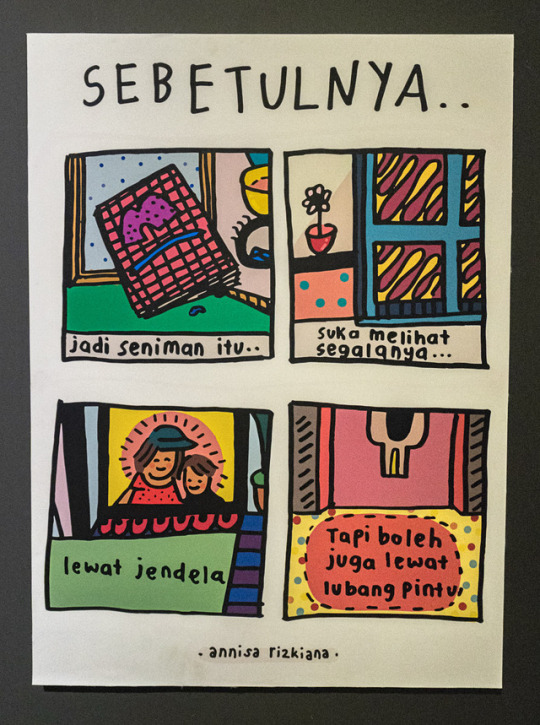 SEBETULNYA..
jadi seniman itu..
suka melihat
segalanya...
lewat jendela
Tapi boleh
juga lewat
lubang pintu.
- annisa rizkiana -